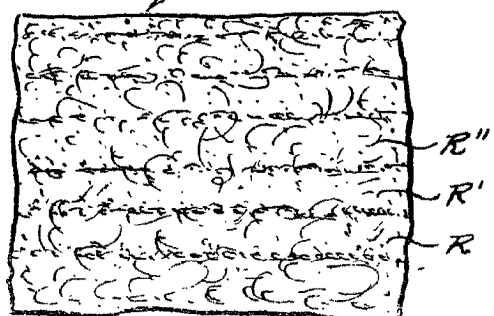 R"
R'
R